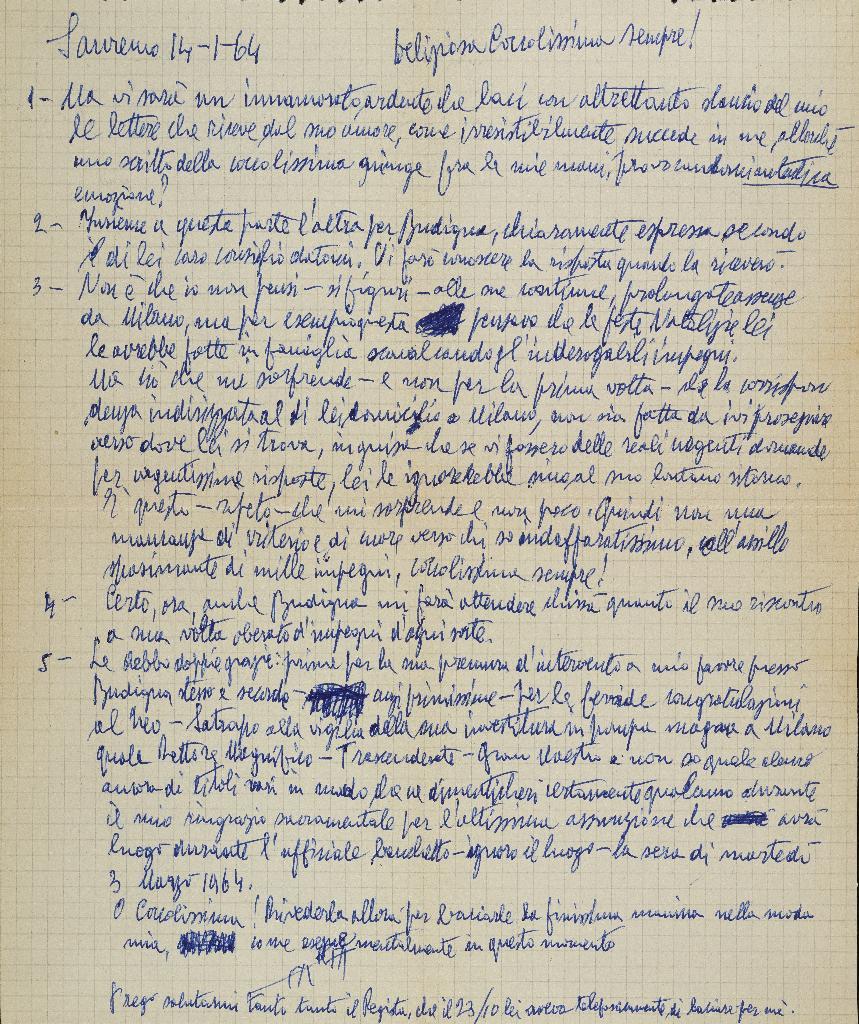 Sanremo 14-1-64 Coccolissima sempre!
1- Ma vi sarà un innamorato ardente che baci con altrettanto slancio del mio
le lettere che riceve dal suo amore, come irresistibilmente succede in me, allorché
uno scritto della coccolissima giunge fra le mie mani, provocandomi
emozione?
2- Insieme a questa parte l'altra per Budigna, chiaramente espressa secondo
il di lei caro consiglio datomi. Vi farò conoscere la risposta quando la riceverò.
3- Non è che io non pensi - si figuri - alle sue continue, prolungate assenze
da Milano, ma per esempio questa pensavo che le feste Natalizie lei
le avrebbe fatte in famiglia scavalcando gl'inderogabili impegni.
Ma ciò che mi sorprende - e non per la prima volta - che la corrispon
denza indirizzata al di lei domicilio a Milano, non sia fatta da ivi proseguire
verso dove lei si trova, in guisa che se vi fossero delle reali urgenti domande
per urgentissime risposte, lei le ignorerebbe sino al suo lontano ritorno.
È questo - ripeto - che mi sorprende e non poco. Quindi non una
mancanza di criterio e di cuore verso chi so indaffaratissima, coll'assillo
spasimante di mille impegni, coccolissima sempre!
4- Certo, ora, anche Budigna mi farà attendere chissà quanto il suo riscontro
a sua volta oberato d'impegni d'ogni sorte.
5- Le debbo doppie grazie: prime per la sua premura d'intervento a mio favore presso
Budigna stesso e secondo - anzi primissime - per le congratulazioni
al Neo - Satrapo alla vigilia della sua investitura in pompa magna a Milano
quale Rettore Magnifico - Trascendente - Gran Maestro e non so quale elenco
ancora di titoli vari in modo che ne dimenticherò certamente qualcuno durante
il mio ringrazio sacramentale per l'altissima assunzione che avrà
luogo durante l'ufficiale banchetto - ignoro il luogo - la sera di martedì
3 Marzo 1964.
O Coccolissima! Rivederla allora per baciarle la finissima manina nella moda
mia, come mentalmente in questo momento
Prego salutarmi tanto tanto il Regista, che il 23/10 lei aveva telefonicamente di baciare per me.